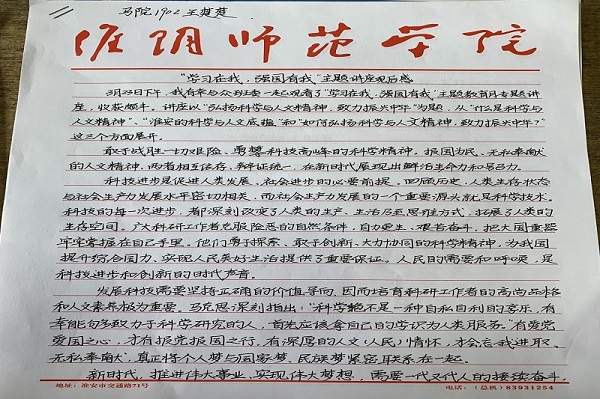 马院1902 王楚楚
淮阴师范学院
"学习在我，强国有我"主题讲座观后感
3月23日下午，我有幸与众班委一起观看了"学习在我，强国有我"主题教育月专题讲
座，收获颇丰。讲座以"弘扬科学与人文精神，致力振兴中华"为题，从"什么是科学与
人文精神"、"淮安的科学与人文底蕴"和"如何弘扬科学与人文精神，致力振兴中华？"
这三个方面展开。
敢于战胜一切艰险、勇攀科技高峰的科学精神，报国为民、无私奉献
的人文精神，两者相互依存、辩证统一，在新时代展现出鲜活生命力和号召力。
科技进步是促进人类发展、社会进步的必要前提。回顾历史，人类生存状态
与社会生产力发展水平密切相关，而社会生产力发展的一个重要源头就是科学技术。
科技的每一次进步，都深刻改变了人类的生产、生活乃至思维方式，拓展了人类的
生存空间。广大科研工作者克服险恶的自然条件，自力更生、艰苦奋斗，把大国重器
牢牢掌握在自己手里。他们勇于探索、敢于创新、大力协同的科学精神，为我国
提升综合国力、实现人民美好生活提供了重要保证。人民的需要和呼唤，是
科技进步和创新的时代声音。
发展科技需要坚持正确的价值导向，因而培育科研工作者的高尚品格
和人文素养极为重要。马克思深刻指出："科学绝不是一种自私自利的享乐，有
幸能够致力于科学研究的人，首先应该拿自己的学识为人类服务。"有爱党
爱国之心，才有报党报国之行，有深厚的人文（人民）情怀，才会忘我进取、
无私奉献，真正将个人梦与国家梦、民族梦紧密联系在一起。
新时代，推进伟大事业、实现伟大梦想，需要一代又一代人的接续奋斗，
地址：淮安市交通路71号 电话：（总机）83931254